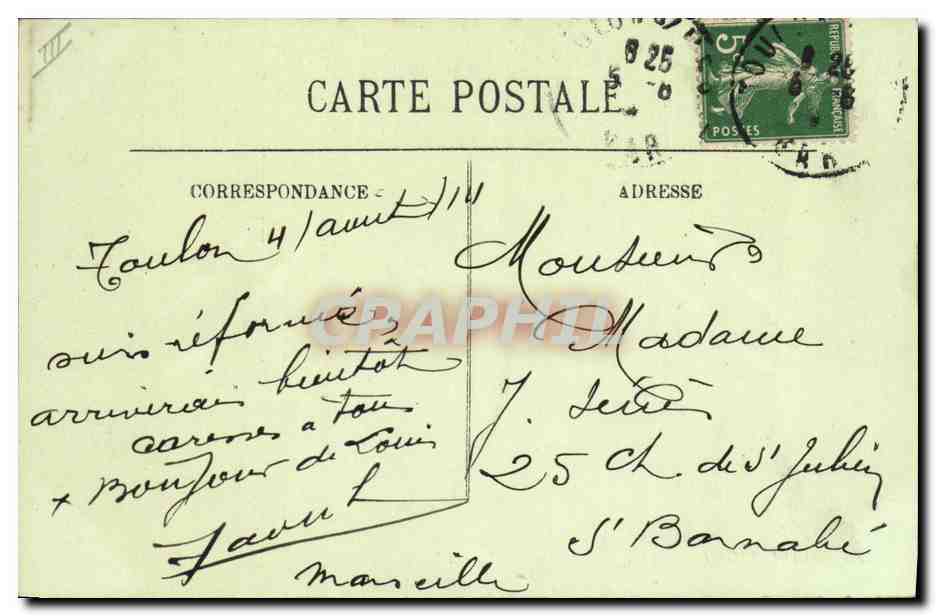 III
CARTE POSTALE
5
REPUBLIQUE FRANÇAISE
POSTES
8 25
5 - 8
VAR
CORRESPONDANCE
ADRESSE
Toulon 4/aout/14
suis réformé
arriverai bientôt
caresses a tous
+ Bonjour de Louis
Monsieur
Madame
J.
25 Ch. de St Julien
St Barnabé
Marseille
CPAPHIL